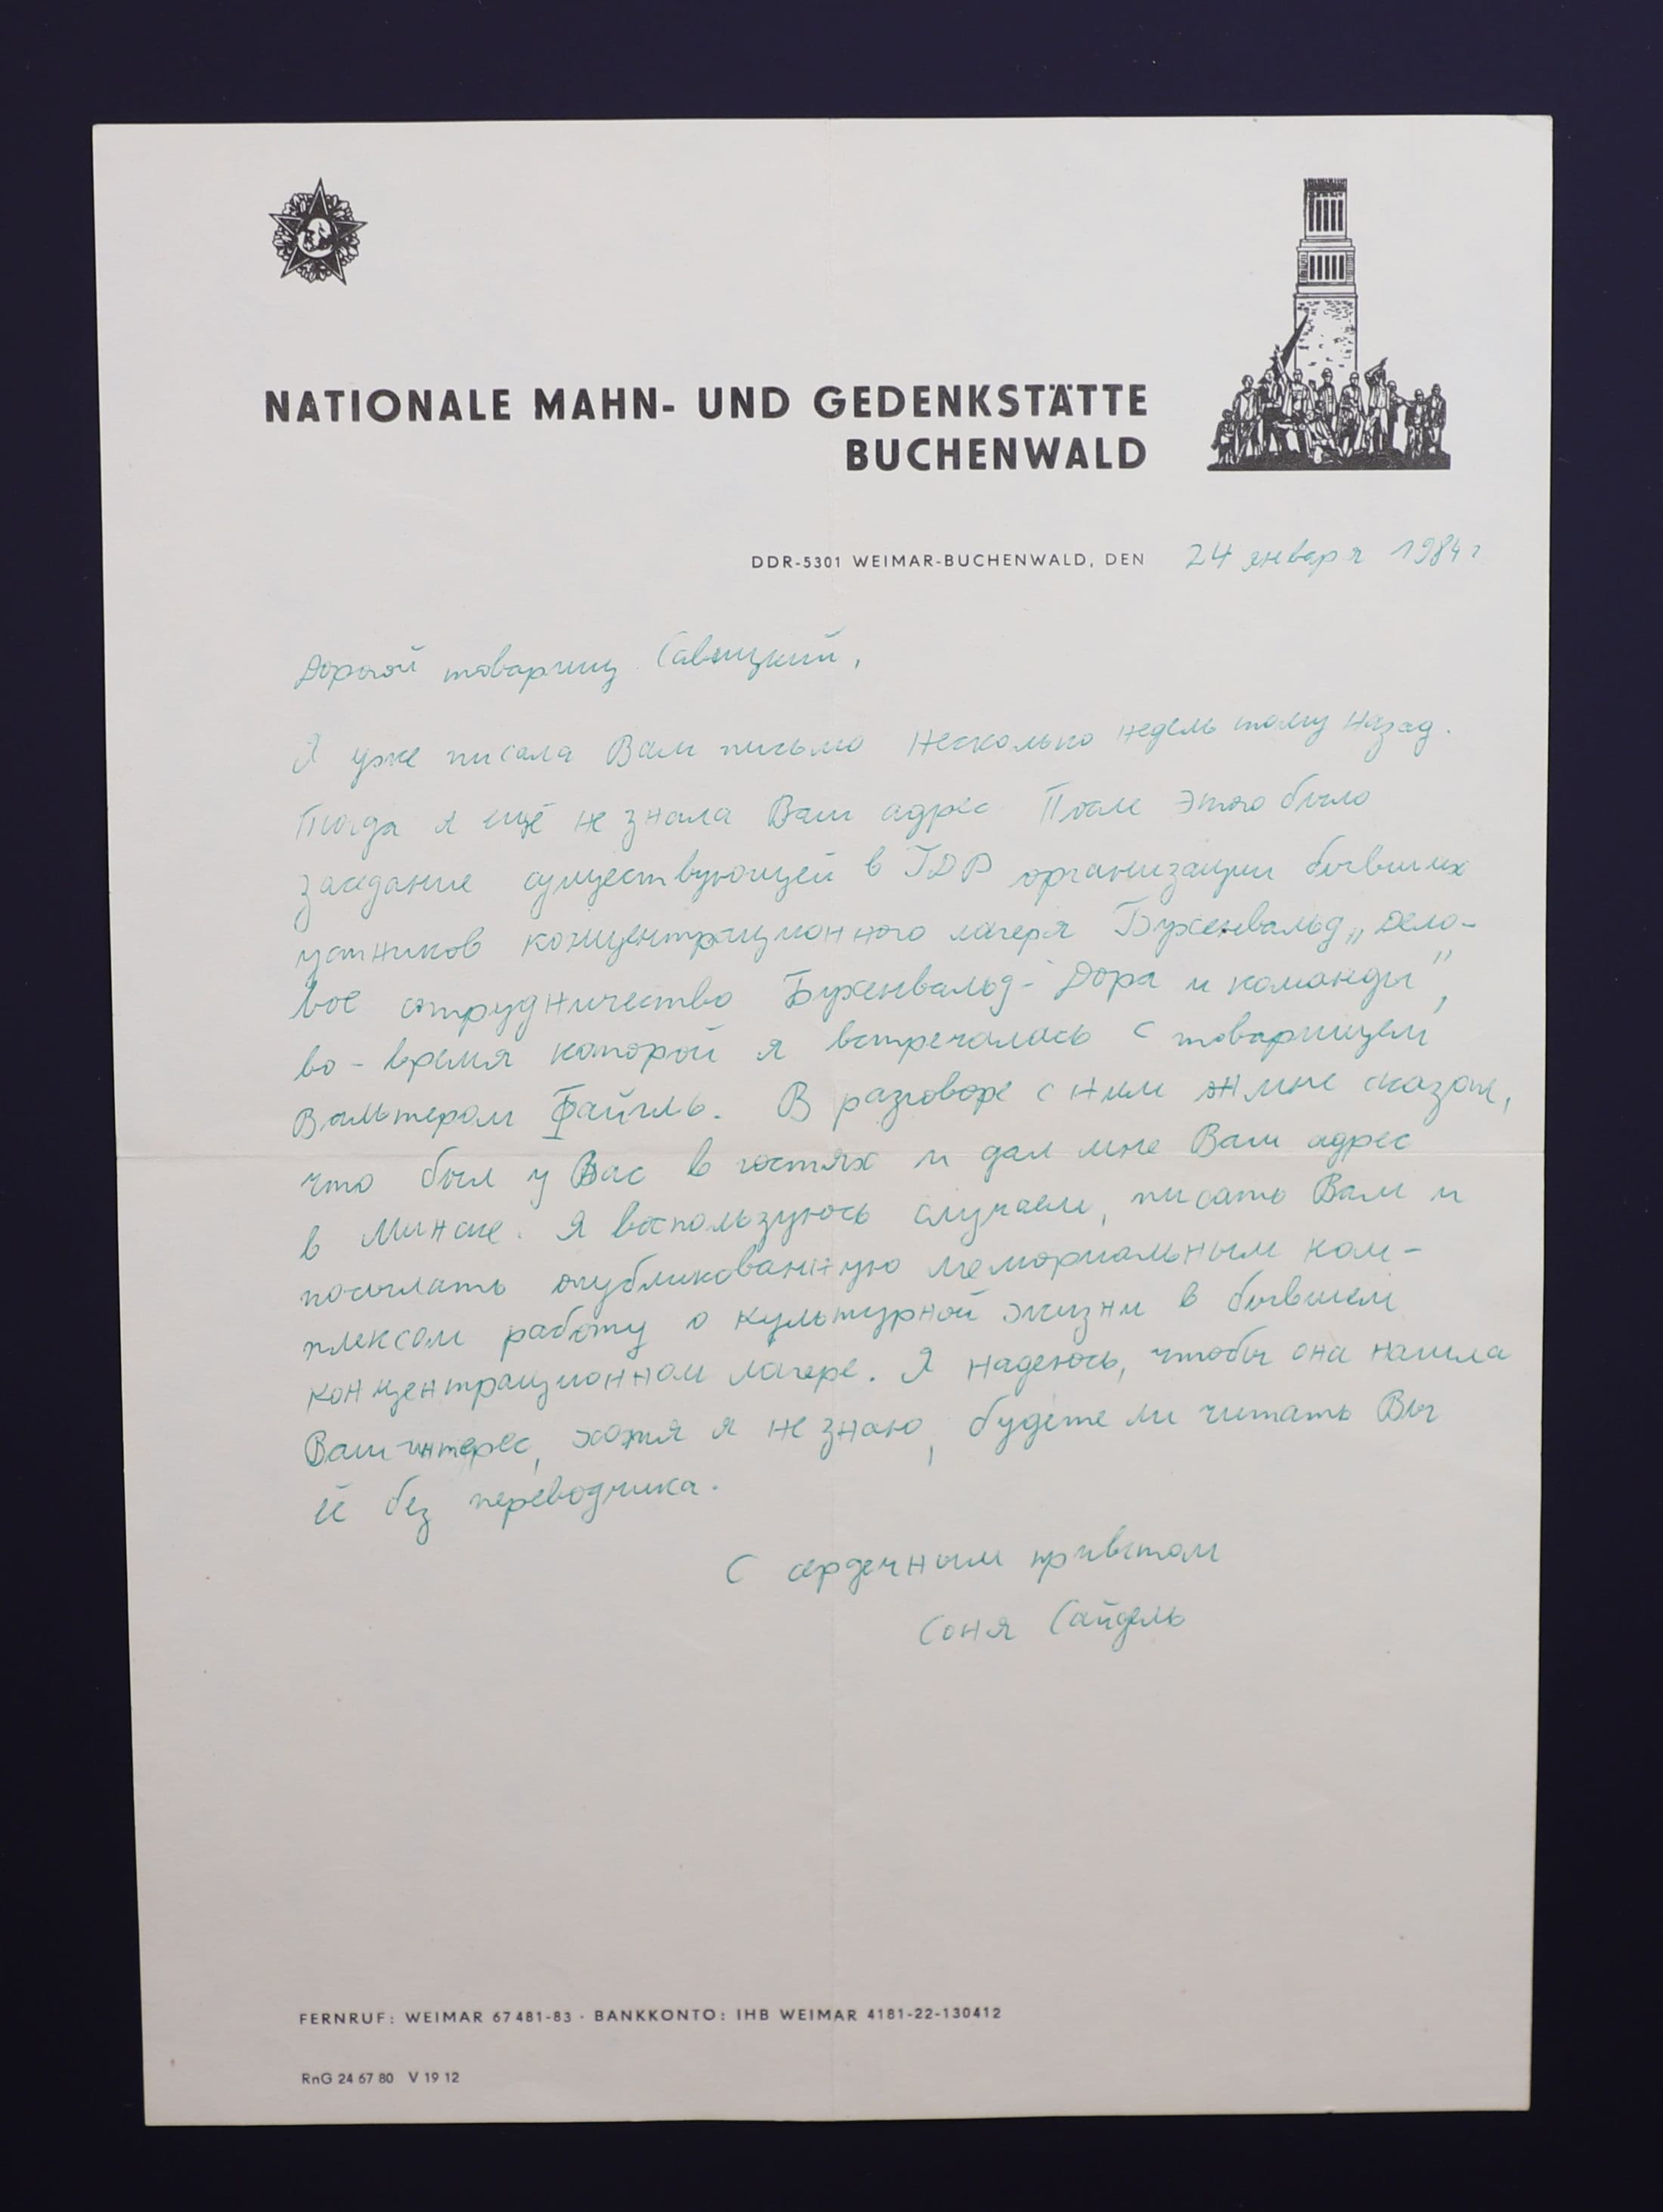 NATIONALE MAHN- UND GEDENKSTÄTTE
BUCHENWALD
DDR-5301 WEIMAR-BUCHENWALD, DEN 24 января 1984 г
Дорогой товарищ Савицкий,
Я уже писала Вам письмо несколько недель тому назад.
Тогда я ещё не знала Ваш адрес После этого было
заседание существующей в ГДР организации бывших
узников концентрационного лагеря Бухенвальд „Дело-
вое сотрудничество Бухенвальд-Дора и команды",
во-время которой я встречалась с товарищем
Вальтером Файгль. В разговоре с ним он мне сказал,
что был у Вас в гостях и дал мне Ваш адрес
в Минске. Я воспользуюсь случаем, писать Вам и
посылать опубликованную мемориальным ком-
плексом работу о культурной жизни в бывшем
концентрационном лагере. Я надеюсь, чтобы она нашла
Ваш интерес, хотя я не знаю, будете ли читать Вы
её без переводчика.
С сердечным приветом
Соня Сайдель
FERNRUF: WEIMAR 67 481-83 · BANKKONTO: IHB WEIMAR 4181-22-130412
RnG 24 67 80 V 19 12